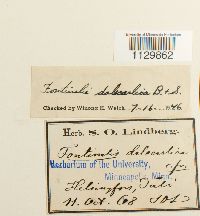 University of Minnesota Herbarium
1129862
Fontinalis dalecarlica B & S.
Checked by Winona H. Welch 7-16-
Herb. S. O. Lindberg.
Fontinalis dalecarlica
Herbarium of the University,
Minneapolis, Minn.
Helsingfors,
11. Oct. 68 SOL